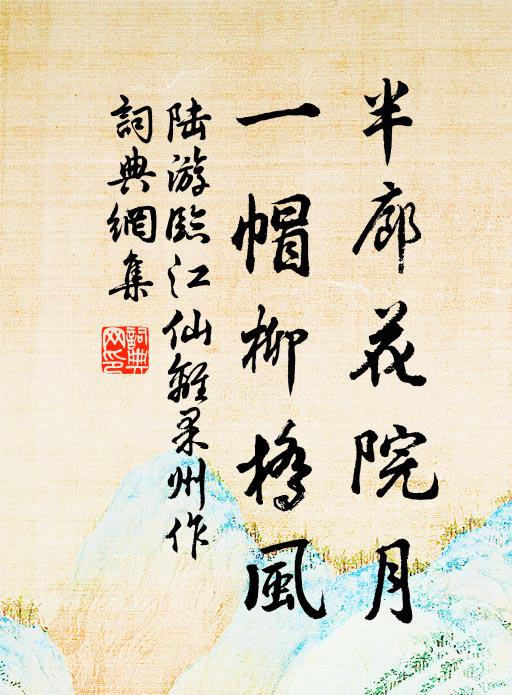 半廊花院月
一帽柳橋風
陆游臨江仙離果州作
詞典網集
詞典网印